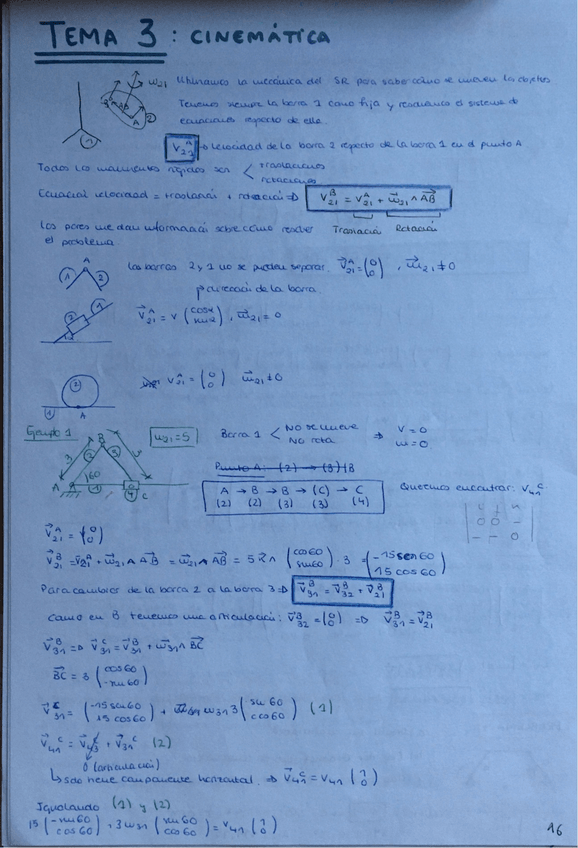 TEMA 3: CINEMÁTICA
Utilizamos la mecánica del SR para saber cómo se mueven los objetos
Tenemos siempre la barra 1 como fija y resolvemos el sistema de
ecuaciones respecto de ella.
V₂₁ᴬ → Velocidad de la barra 2 respecto de la barra 1 en el punto A
Todos los movimientos rígidos son < traslaciones
rotaciones
Ecuación velocidad = traslación + rotación ⇒ V₂₁ᴮ = V₂₁ᴬ + ω⃗₂₁ ∧ AB⃗
Traslación Rotación
Los pares me dan información sobre cómo resolver
el problema.
las barras 2 y 1 no se pueden separar. V⃗₂₁ᴬ = (0 0), ω⃗₂₁ ≠ 0
dirección de la barra.
V⃗₂₁ᴬ = v (cosα senα), ω⃗₂₁ = 0
V₂₁ᴬ = (0 0) ω⃗₂₁ ≠ 0
Ejemplo 1
ω₂₁ = 5
Barra 1 < No se mueve ⇒ v = 0
No rota ω = 0
A → B → B → (C) → C
(2) (2) (3) (3) (4)
Queremos encontrar: V₄₁ᶜ
V⃗₂₁ᴬ = (0 0)
V⃗₂₁ᴮ = V⃗₂₁ᴬ + ω⃗₂₁ ∧ AB⃗ = ω⃗₂₁ ∧ AB⃗ = 5k⃗ ∧ (cos60 sen60) · 3 = (-15sen60 15cos60)
Para cambiar de la barra 2 a la barra 3 ⇒ V⃗₃₁ᴮ = V⃗₃₂ᴮ + V⃗₂₁ᴮ
Como en B tenemos una articulación: V⃗₃₂ᴮ = (0 0) ⇒ V⃗₃₁ᴮ = V⃗₂₁ᴮ
V⃗₃₁ᴮ ⇒ V⃗₃₁ᶜ = V⃗₃₁ᴮ + ω⃗₃₁ ∧ BC⃗
BC⃗ = 3 (cos60 -sen60)
V⃗₃₁ᶜ = (-15sen60 15cos60) + ω₃₁ 3 (sen60 cos60) (1)
V⃗₄₁ᶜ = V⃗₄₃ᶜ + V⃗₃₁ᶜ (2)
0 (articulación)
↳ solo tiene componente horizontal ⇒ V⃗₄₁ᶜ = V₄₁ (1 0)
Igualando (1) y (2)
15 (-sen60 cos60) + 3ω₃₁ (sen60 cos60) = V₄₁ (1 0)
16